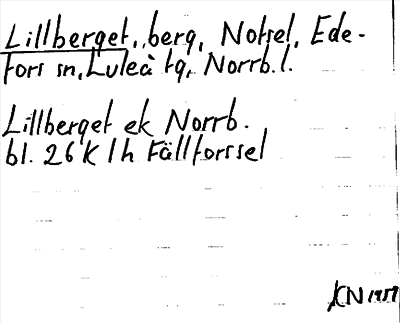 Lillberget, berg, Notsel, Ede-
fors sn, Luleå tg, Norrb. l.
Lillberget ek Norrb.
bl. 26 K 1 h Fällforssel
KN 1957